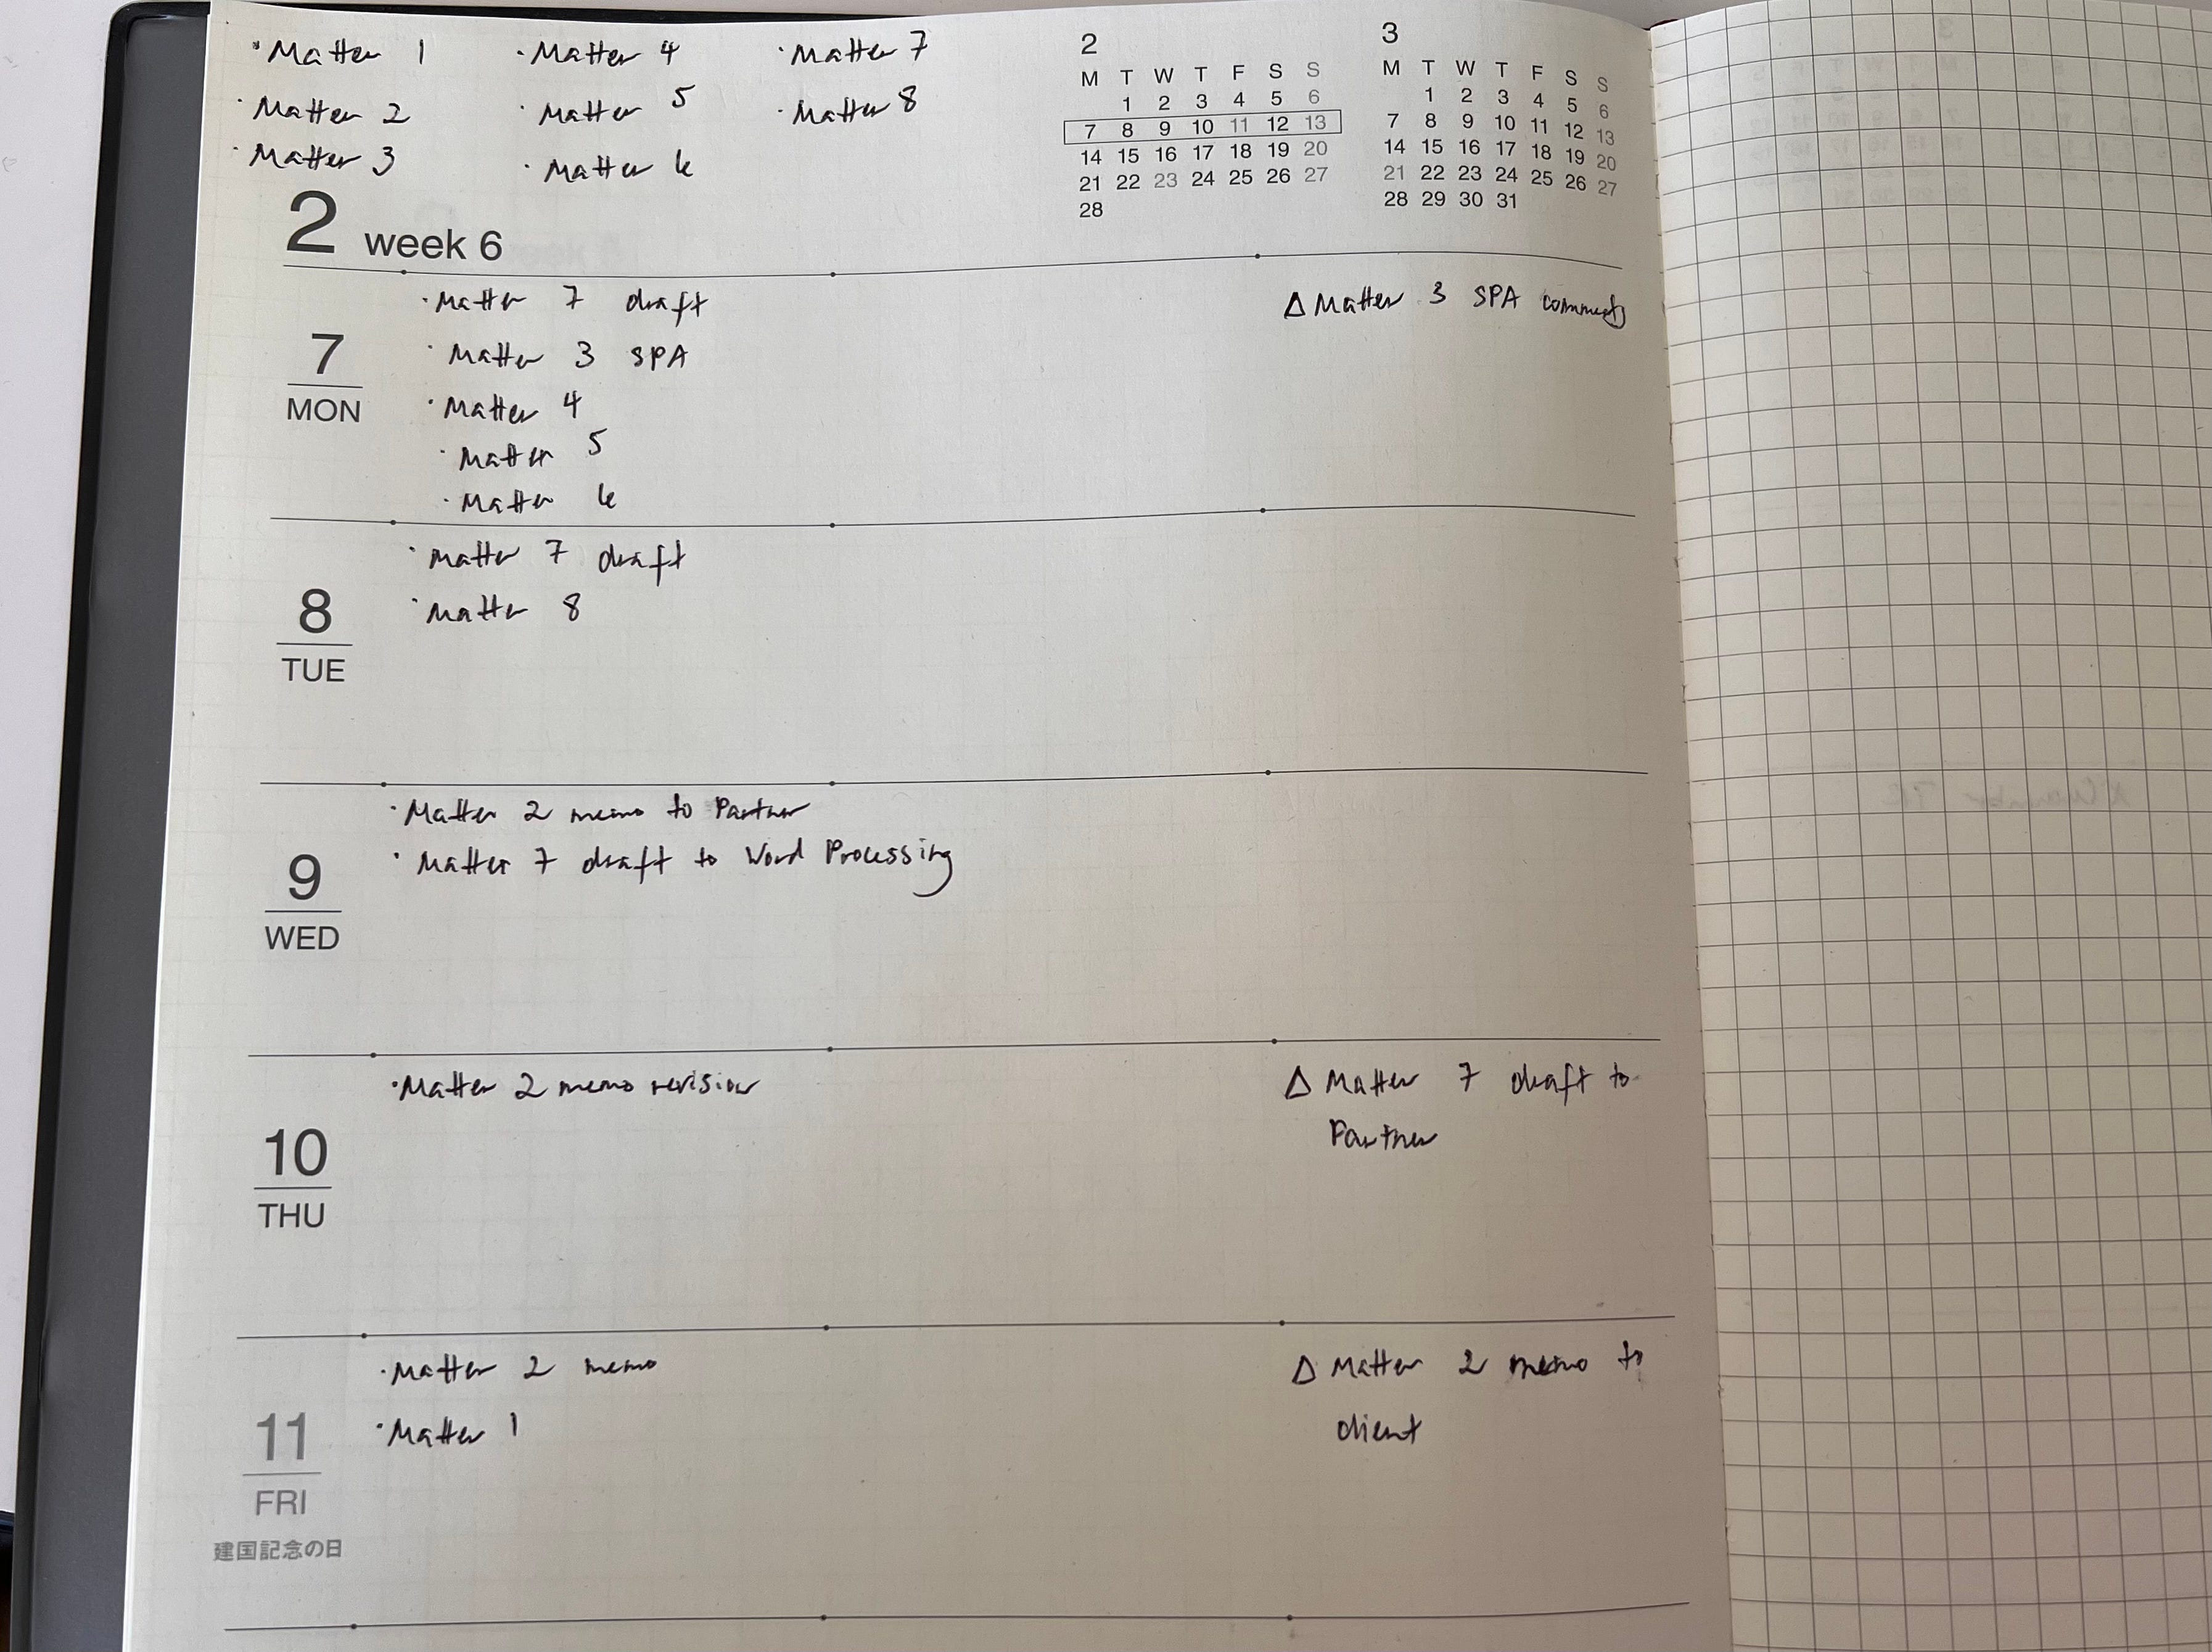 · Matter 1 · Matter 4 · Matter 7
· Matter 2 · Matter 5 · Matter 8
· Matter 3 · Matter 6
2
M T W T F S S
1 2 3 4 5 6
7 8 9 10 11 12 13
14 15 16 17 18 19 20
21 22 23 24 25 26 27
28
3
M T W T F S S
1 2 3 4 5 6
7 8 9 10 11 12 13
14 15 16 17 18 19 20
21 22 23 24 25 26 27
28 29 30 31
2 week 6
7
MON
· Matter 7 draft
· Matter 3 SPA
· Matter 4
· Matter 5
· Matter 6
Δ Matter 3 SPA comments
8
TUE
· Matter 7 draft
· Matter 8
9
WED
· Matter 2 memo to Partner
· Matter 7 draft to Word Processing
10
THU
· Matter 2 memo revision
Δ Matter 7 draft to
Partner
11
FRI
建国記念の日
· Matter 2 memo
· Matter 1
Δ Matter 2 memo to
client